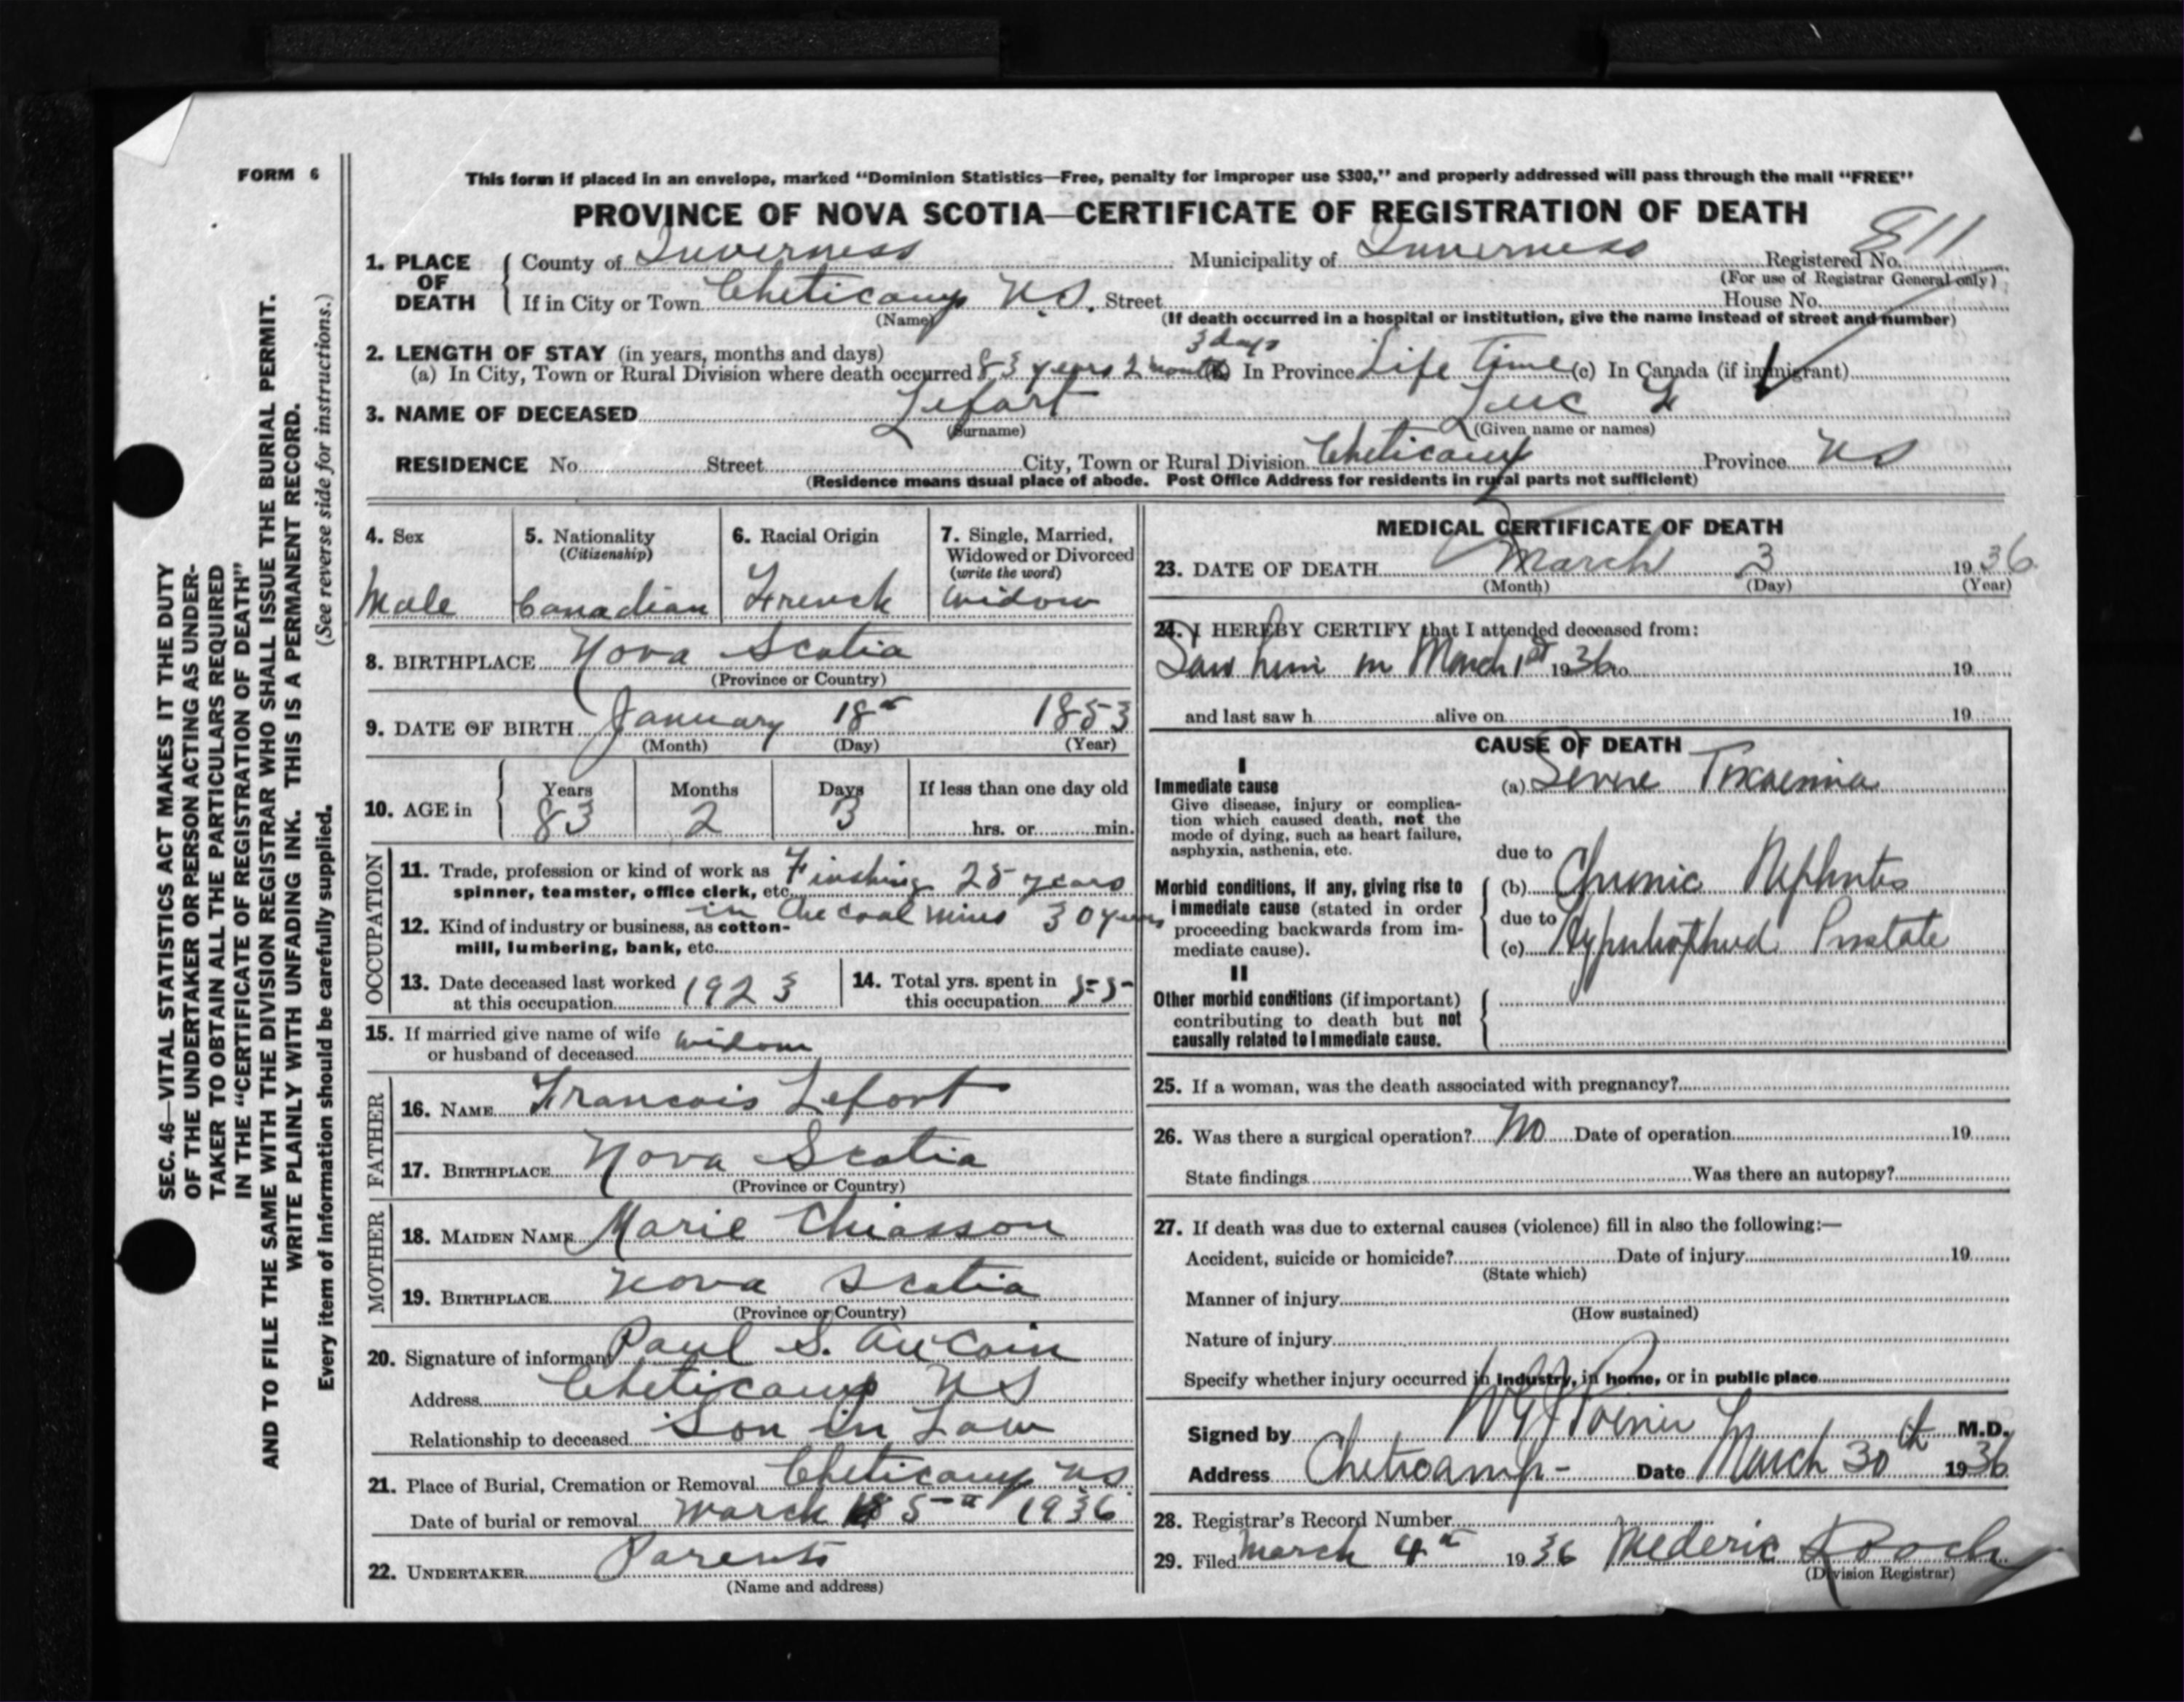 FORM 6
SEC. 46—VITAL STATISTICS ACT MAKES IT THE DUTY
OF THE UNDERTAKER OR PERSON ACTING AS UNDER-
TAKER TO OBTAIN ALL THE PARTICULARS REQUIRED
IN THE "CERTIFICATE OF REGISTRATION OF DEATH"
AND TO FILE THE SAME WITH THE DIVISION REGISTRAR WHO SHALL ISSUE THE BURIAL PERMIT.
WRITE PLAINLY WITH UNFADING INK. THIS IS A PERMANENT RECORD.
Every item of information should be carefully supplied. (See reverse side for instructions.)
This form if placed in an envelope, marked "Dominion Statistics—Free, penalty for improper use $300," and properly addressed will pass through the mail "FREE"
PROVINCE OF NOVA SCOTIA—CERTIFICATE OF REGISTRATION OF DEATH
1. PLACE OF DEATH County of Inverness Municipality of Inverness Registered No. 811
(For use of Registrar General only)
If in City or Town Cheticamp N.S. Street House No.
(Name) (If death occurred in a hospital or institution, give the name instead of street and number)
2. LENGTH OF STAY (in years, months and days) 3 days
(a) In City, Town or Rural Division where death occurred 83 years 2 months In Province Life Time (c) In Canada (if immigrant)
3. NAME OF DECEASED Lefort Luc
(Surname) (Given name or names)
RESIDENCE No. Street City, Town or Rural Division Cheticamp Province NS
(Residence means usual place of abode. Post Office Address for residents in rural parts not sufficient)
4. Sex Male
5. Nationality (Citizenship) Canadian
6. Racial Origin French
7. Single, Married, Widowed or Divorced (write the word) Widow
8. BIRTHPLACE Nova Scotia
(Province or Country)
9. DATE OF BIRTH January 18 1853
(Month) (Day) (Year)
10. AGE in Years 83 Months 2 Days 3 If less than one day old hrs. or min.
OCCUPATION
11. Trade, profession or kind of work as Finshing 25 years
spinner, teamster, office clerk, etc.
in the coal mines 30 years
12. Kind of industry or business, as cotton-
mill, lumbering, bank, etc.
13. Date deceased last worked at this occupation 1923
14. Total yrs. spent in this occupation 55
15. If married give name of wife or husband of deceased Widow
FATHER
16. NAME Francois Lefort
17. BIRTHPLACE Nova Scotia
(Province or Country)
MOTHER
18. MAIDEN NAME Marie Chiasson
19. BIRTHPLACE Nova Scotia
(Province or Country)
20. Signature of informant Paul S. AuCoin
Address Cheticamp NS
Relationship to deceased Son in Law
21. Place of Burial, Cremation or Removal Cheticamp NS
Date of burial or removal March 5 1936
22. UNDERTAKER Parents
(Name and address)
MEDICAL CERTIFICATE OF DEATH
23. DATE OF DEATH March 3 1936
(Month) (Day) (Year)
24. I HEREBY CERTIFY that I attended deceased from:
Saw him on March 1st 1936 to 19
and last saw h alive on 19
CAUSE OF DEATH
I
Immediate cause (a) Severe Toxaemia
Give disease, injury or complica-
tion which caused death, not the
mode of dying, such as heart failure,
asphyxia, asthenia, etc.
due to
Morbid conditions, if any, giving rise to (b) Chronic Nephritis
immediate cause (stated in order
due to
proceeding backwards from im-
mediate cause). (c) Hypertrophied Prostate
II
Other morbid conditions (if important)
contributing to death but not
causally related to immediate cause.
25. If a woman, was the death associated with pregnancy?
26. Was there a surgical operation? No Date of operation 19
State findings Was there an autopsy?
27. If death was due to external causes (violence) fill in also the following:—
Accident, suicide or homicide? Date of injury 19
(State which)
Manner of injury
(How sustained)
Nature of injury
Specify whether injury occurred in industry, in home, or in public place
Signed by M.D.
Address Cheticamp- Date March 30th 1936
28. Registrar's Record Number
29. Filed March 4 1936 Mederic Roach
(Division Registrar)